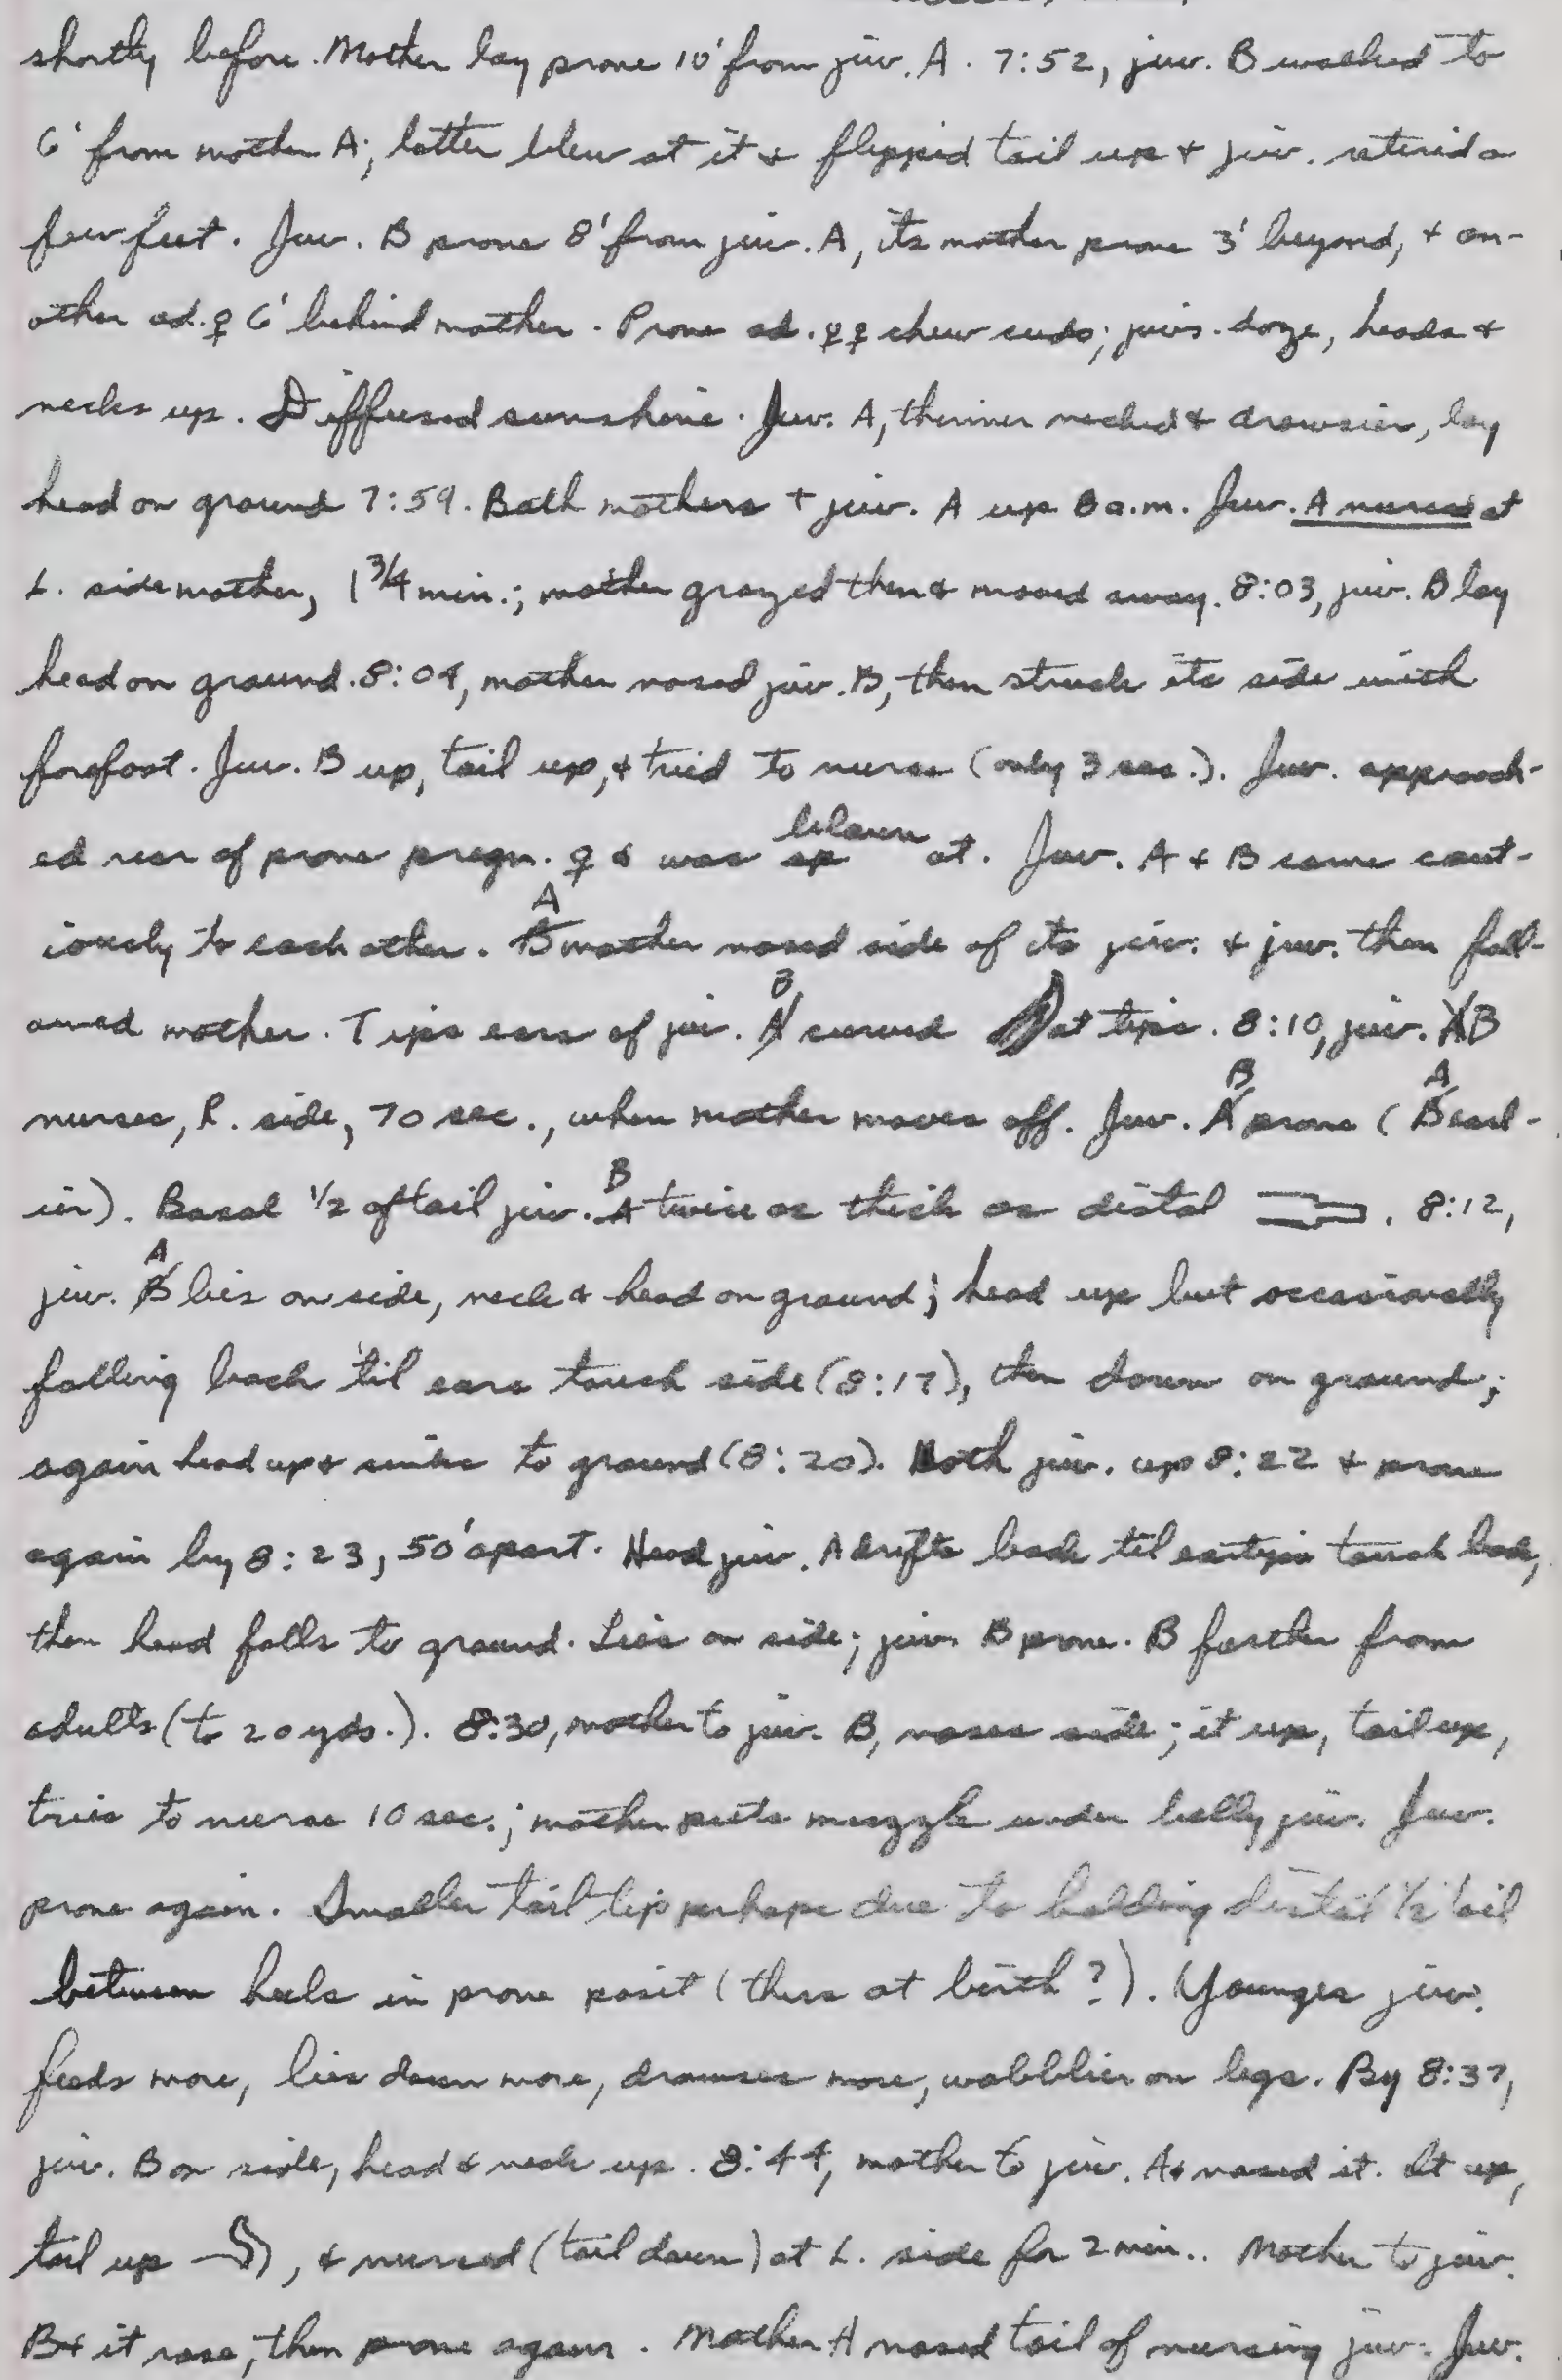 shortly before. Mother lay prone 10' from juv. A. 7:52, juv. B walked to
6' from mother A; latter blew at it & flipped tail up & juv. retired a
few feet. Juv. B prone 8' from juv. A, its mother prone 3' beyond, & an-
other ad. ♀ 6' behind mother. Prone ad. ♀♀ chew cuds; juvs. doze, heads &
necks up. Diffused sunshine. Juv. A, thinner necked & drowsier, lay
head on ground 7:59. Both mothers + juv. A up 8 a.m. Juv. A nurses at
L. side mother, 1 3/4 min.; mother grazed then & moved away. 8:03, juv. B lay
head on ground. 8:04, mother nosed juv. B, then struck its side with
forefoot. Juv. B up, tail up, & tried to nurse (only 3 sec.). Juv. approach-
ed rear of prone pregn. ♀ & was blown at. Juv. A & B came caut-
iously to each other. A mother nosed side of its juv. & juv. then foll-
owed mother. Tips ears of juv. B curved at tips. 8:10, juv. B
nurses, R. side, 70 sec., when mother moves off. Juv. B prone (A earl-
ier). Basal 1/2 of tail juv. B twice as thick as distal. 8:12,
juv. A lies on side, neck & head on ground; head up but occasionally
falling back 'til ears touch side (8:17), then down on ground;
again head up & sinks to ground (8:20). Both juv. up 8:22 & prone
again by 8:23, 50' apart. Head juv. A drifts back til eartips touch back,
then head falls to ground. Lies on side; juv. B prone. B farther from
adults (to 20 yds.). 8:30, mother to juv. B, noses side; it up, tail up,
tries to nurse 10 sec.; mother puts muzzle under belly juv. Juv.
prone again. Smaller tail tip perhaps due to holding distal 1/2 tail
between heels in prone posit (thus at birth?). Younger juv.
feeds more, lies down more, drowses more, wobblier on legs. By 8:37,
juv. B on side, head & neck up. 8:44, mother to juv. A & nosed it. It up,
tail up, & nursed (tail down) at L. side for 2 min.. Mother to juv.
B & it rose, then prone again. Mother A nosed tail of nursing juv. Juv.